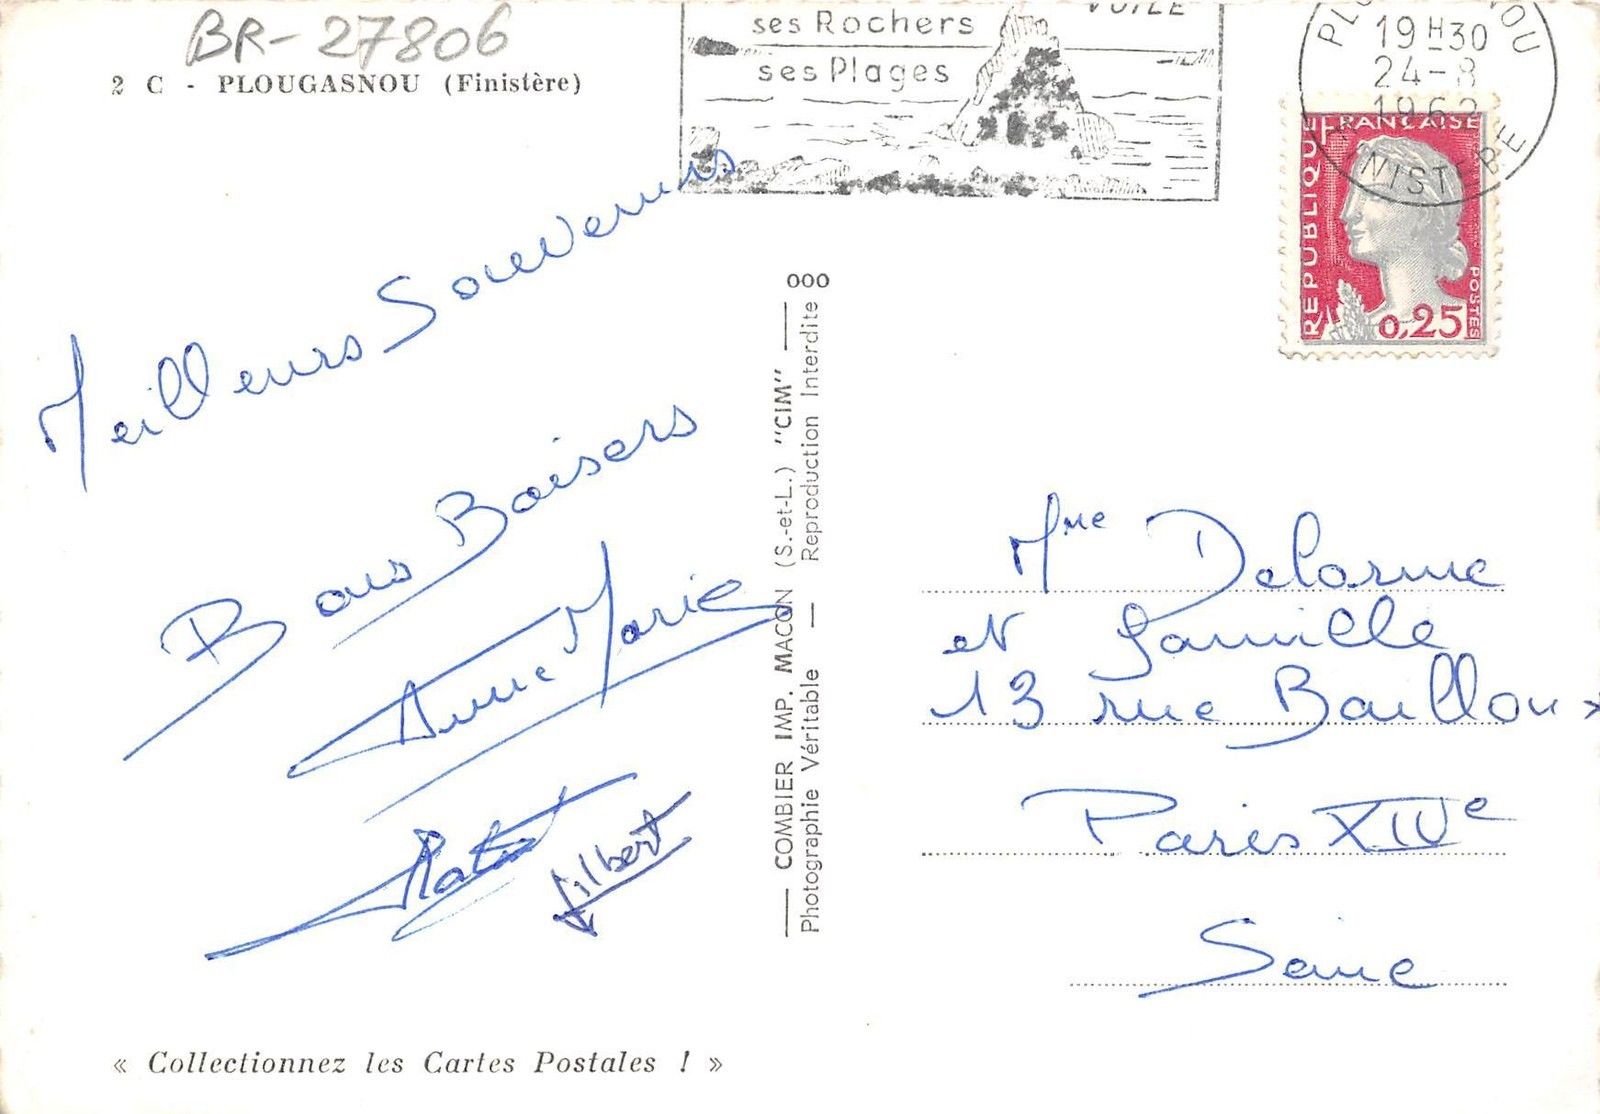 BR-27806
2 C - PLOUGASNOU (Finistère)
VOILE
ses Rochers
ses Plages
19H30
24-8
FINISTERE
REPUBLIQUE FRANÇAISE
POSTES
0,25
Meilleurs Souvenirs
Bons Baisers
Anne Marie
Gilbert
000
COMBIER IMP. MACON (S.-et-L.) "CIM"
Photographie Véritable — Reproduction Interdite
Mme Delorme
et famille
13 rue Baillou
Paris XIVe
Seine
« Collectionnez les Cartes Postales ! »